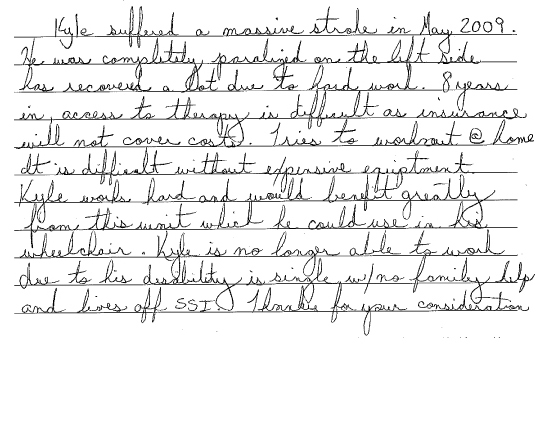 Kyle suffered a massive stroke in May 2009.
He was completely paralized on the left side
has recovered a lot due to hard work. 8 years
in, access to therapy is difficult as insurance
will not cover costs. Tries to workout @ home
It is difficult without expensive equiptment
Kyle works hard and would benefit greatly
from this unit which he could use in his
wheelchair. Kyle is no longer able to work
due to his disability is single w/no family help
and lives off SSI. Thanks for your consideration